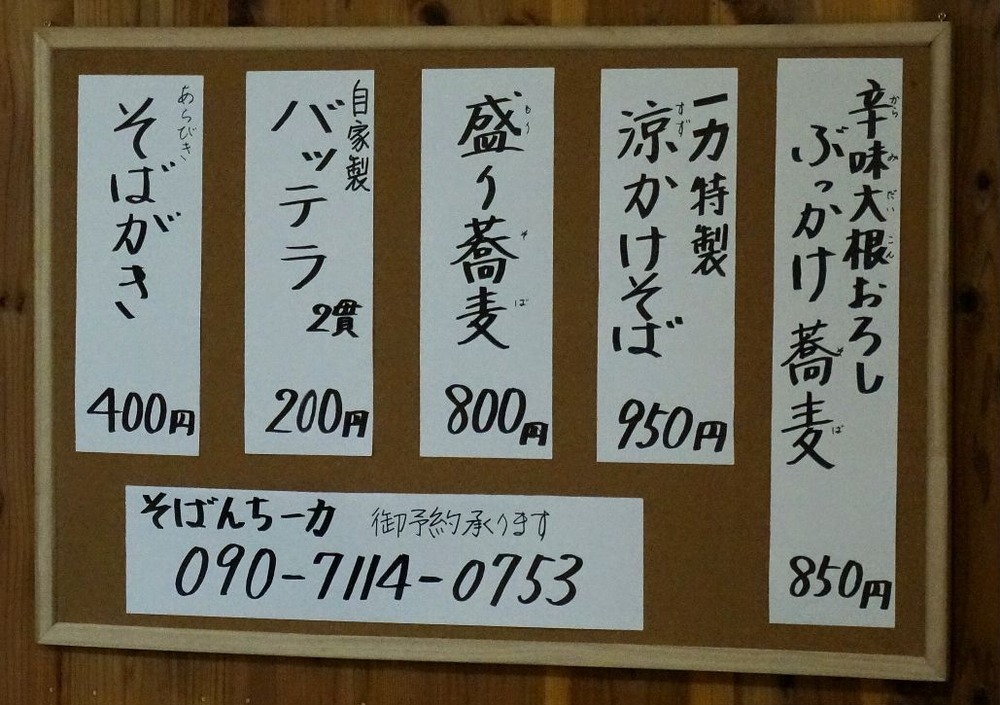 辛味大根おろし
ぶっかけ蕎麦
850円
一力特製
涼かけそば
950円
盛り蕎麦
800円
自家製
バッテラ
2貫
200円
あらびき
そばがき
400円
そばんち一力 御予約承ります
090-7114-0753